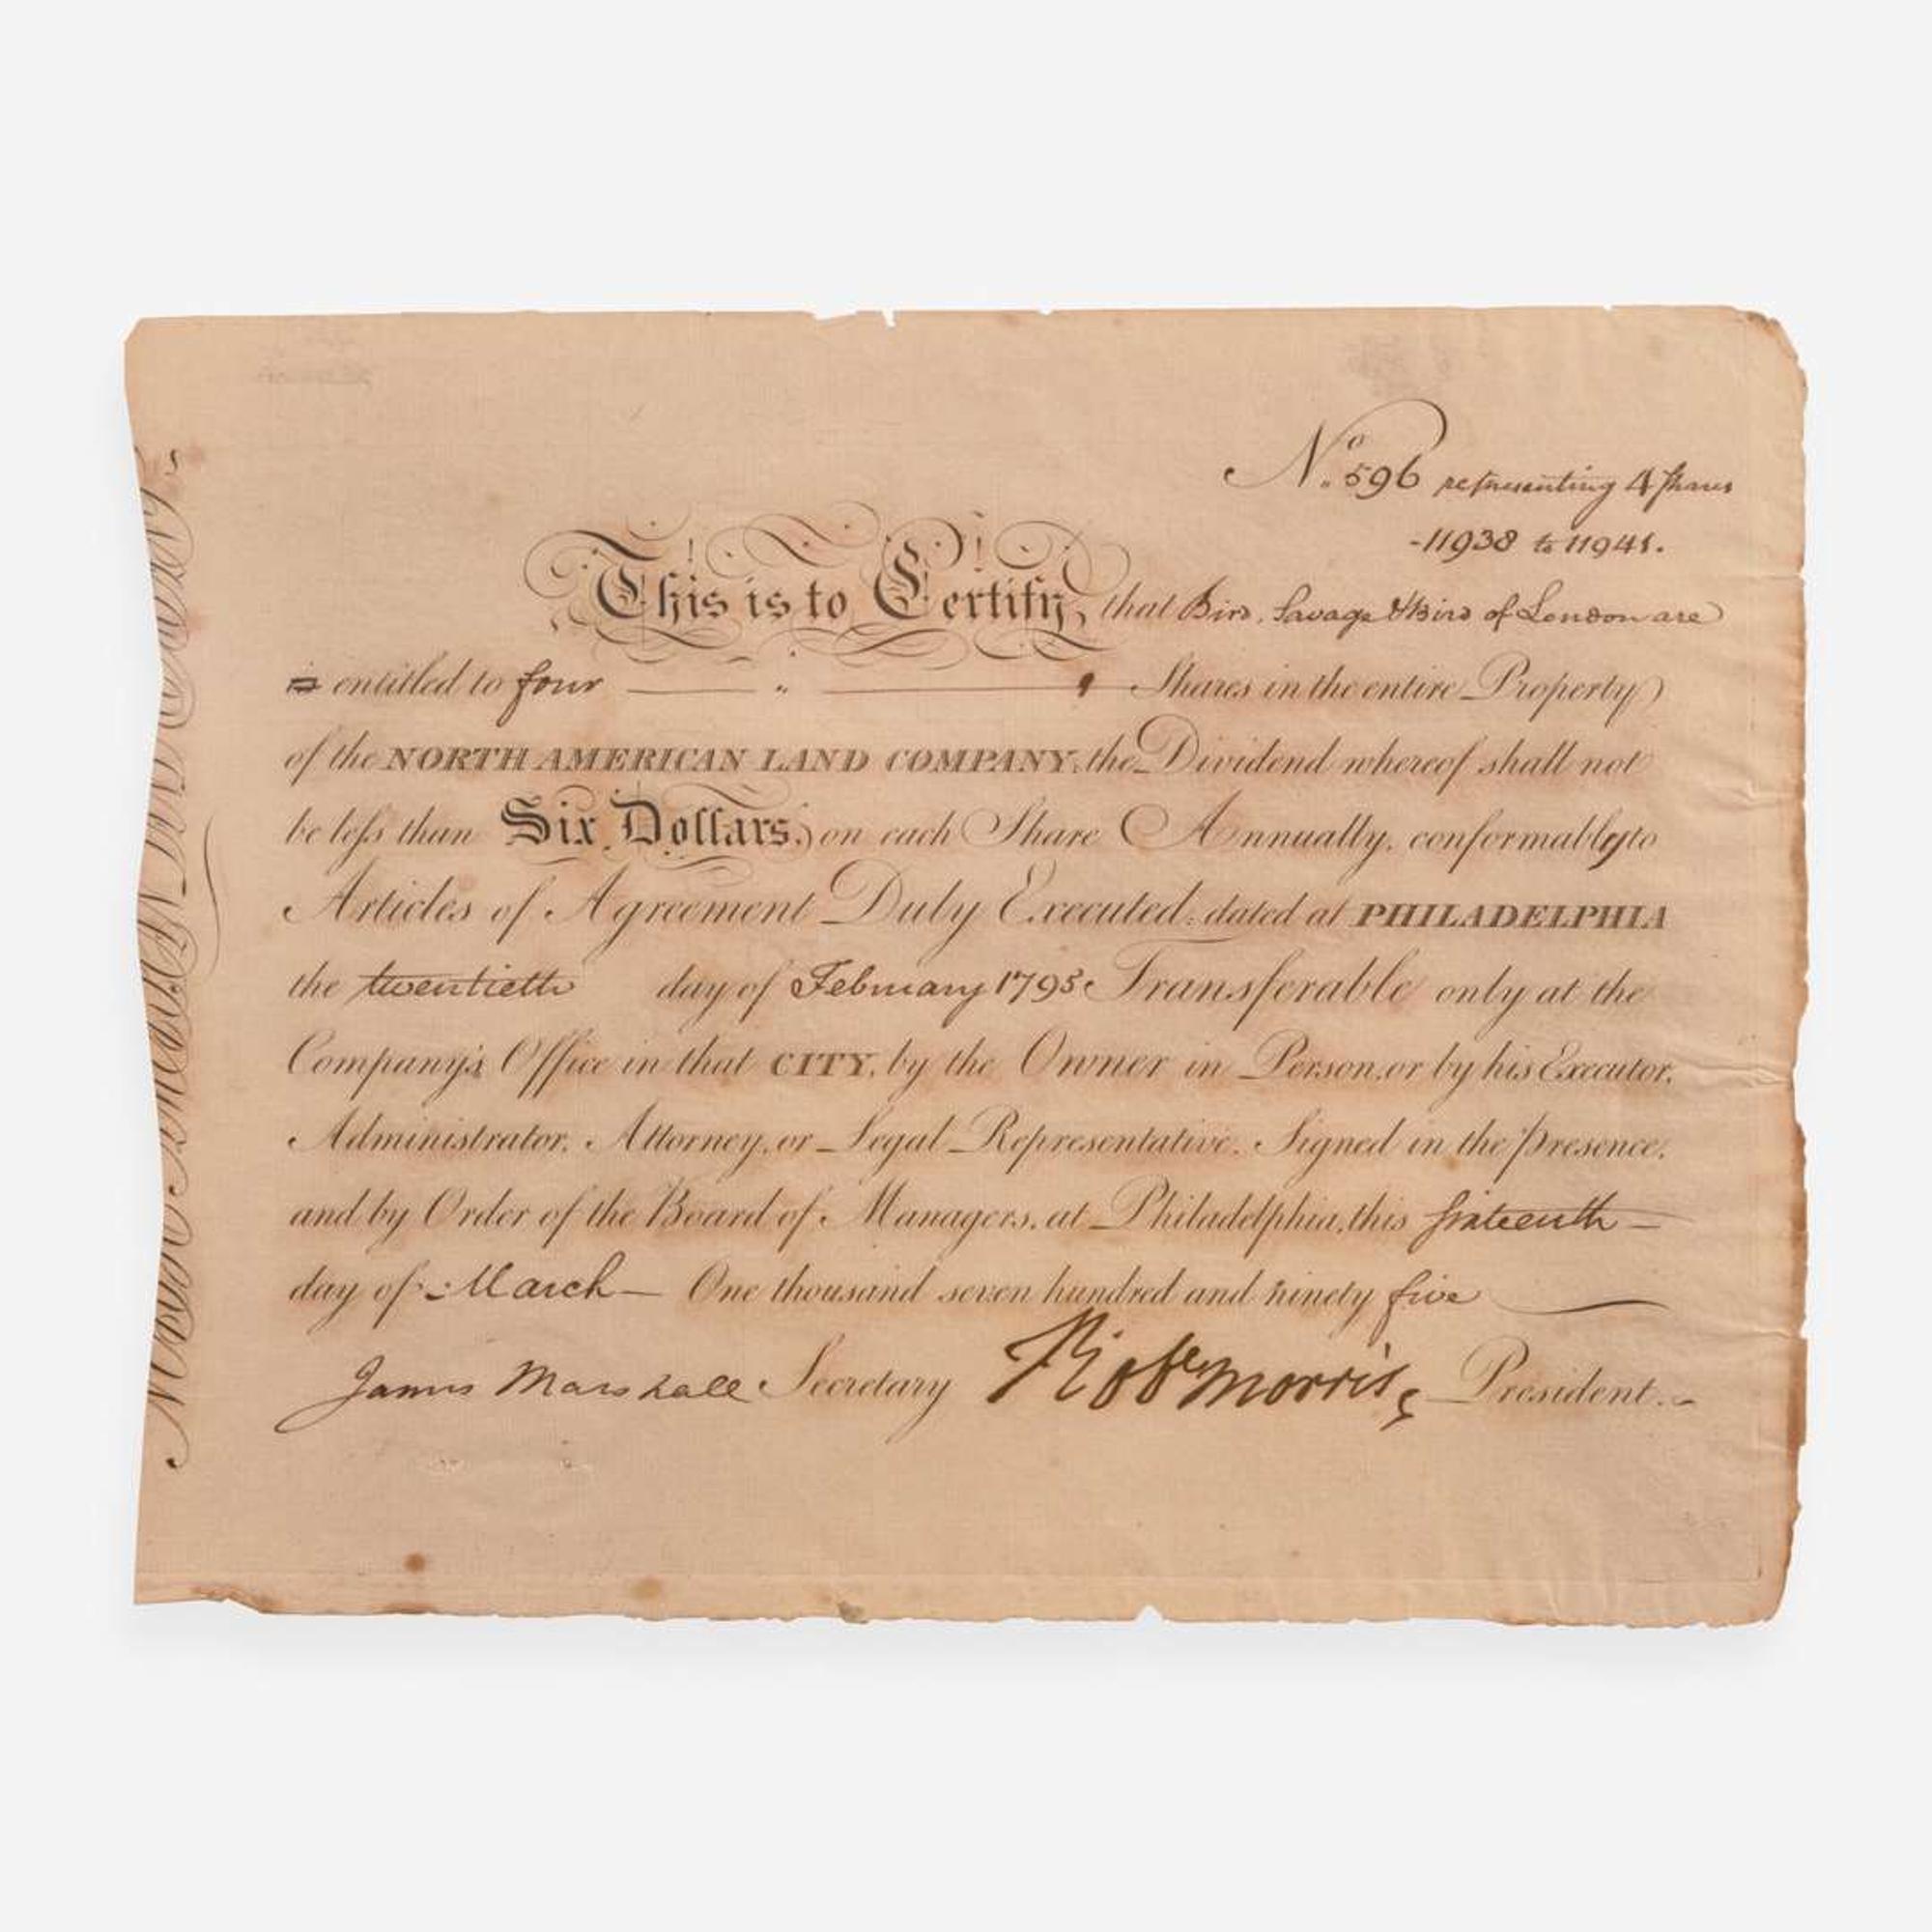 No. 596 representing 4 Shares
-11938 to 11941.
This is to Certify, that Bird, Savage & Bird of London are
is entitled to four Shares in the entire Property
of the NORTH AMERICAN LAND COMPANY, the Dividend whereof shall not
be less than Six Dollars, on each Share Annually, conformably to
Articles of Agreement Duly Executed, dated at PHILADELPHIA
the twentieth day of February 1795. Transferable only at the
Company's Office in that CITY, by the Owner in Person, or by his Executor,
Administrator, Attorney, or Legal Representative. Signed in the presence,
and by Order of the Board of Managers, at Philadelphia, this sixteenth
day of March One thousand seven hundred and ninety five
James Marshall Secretary Robt Morris President.